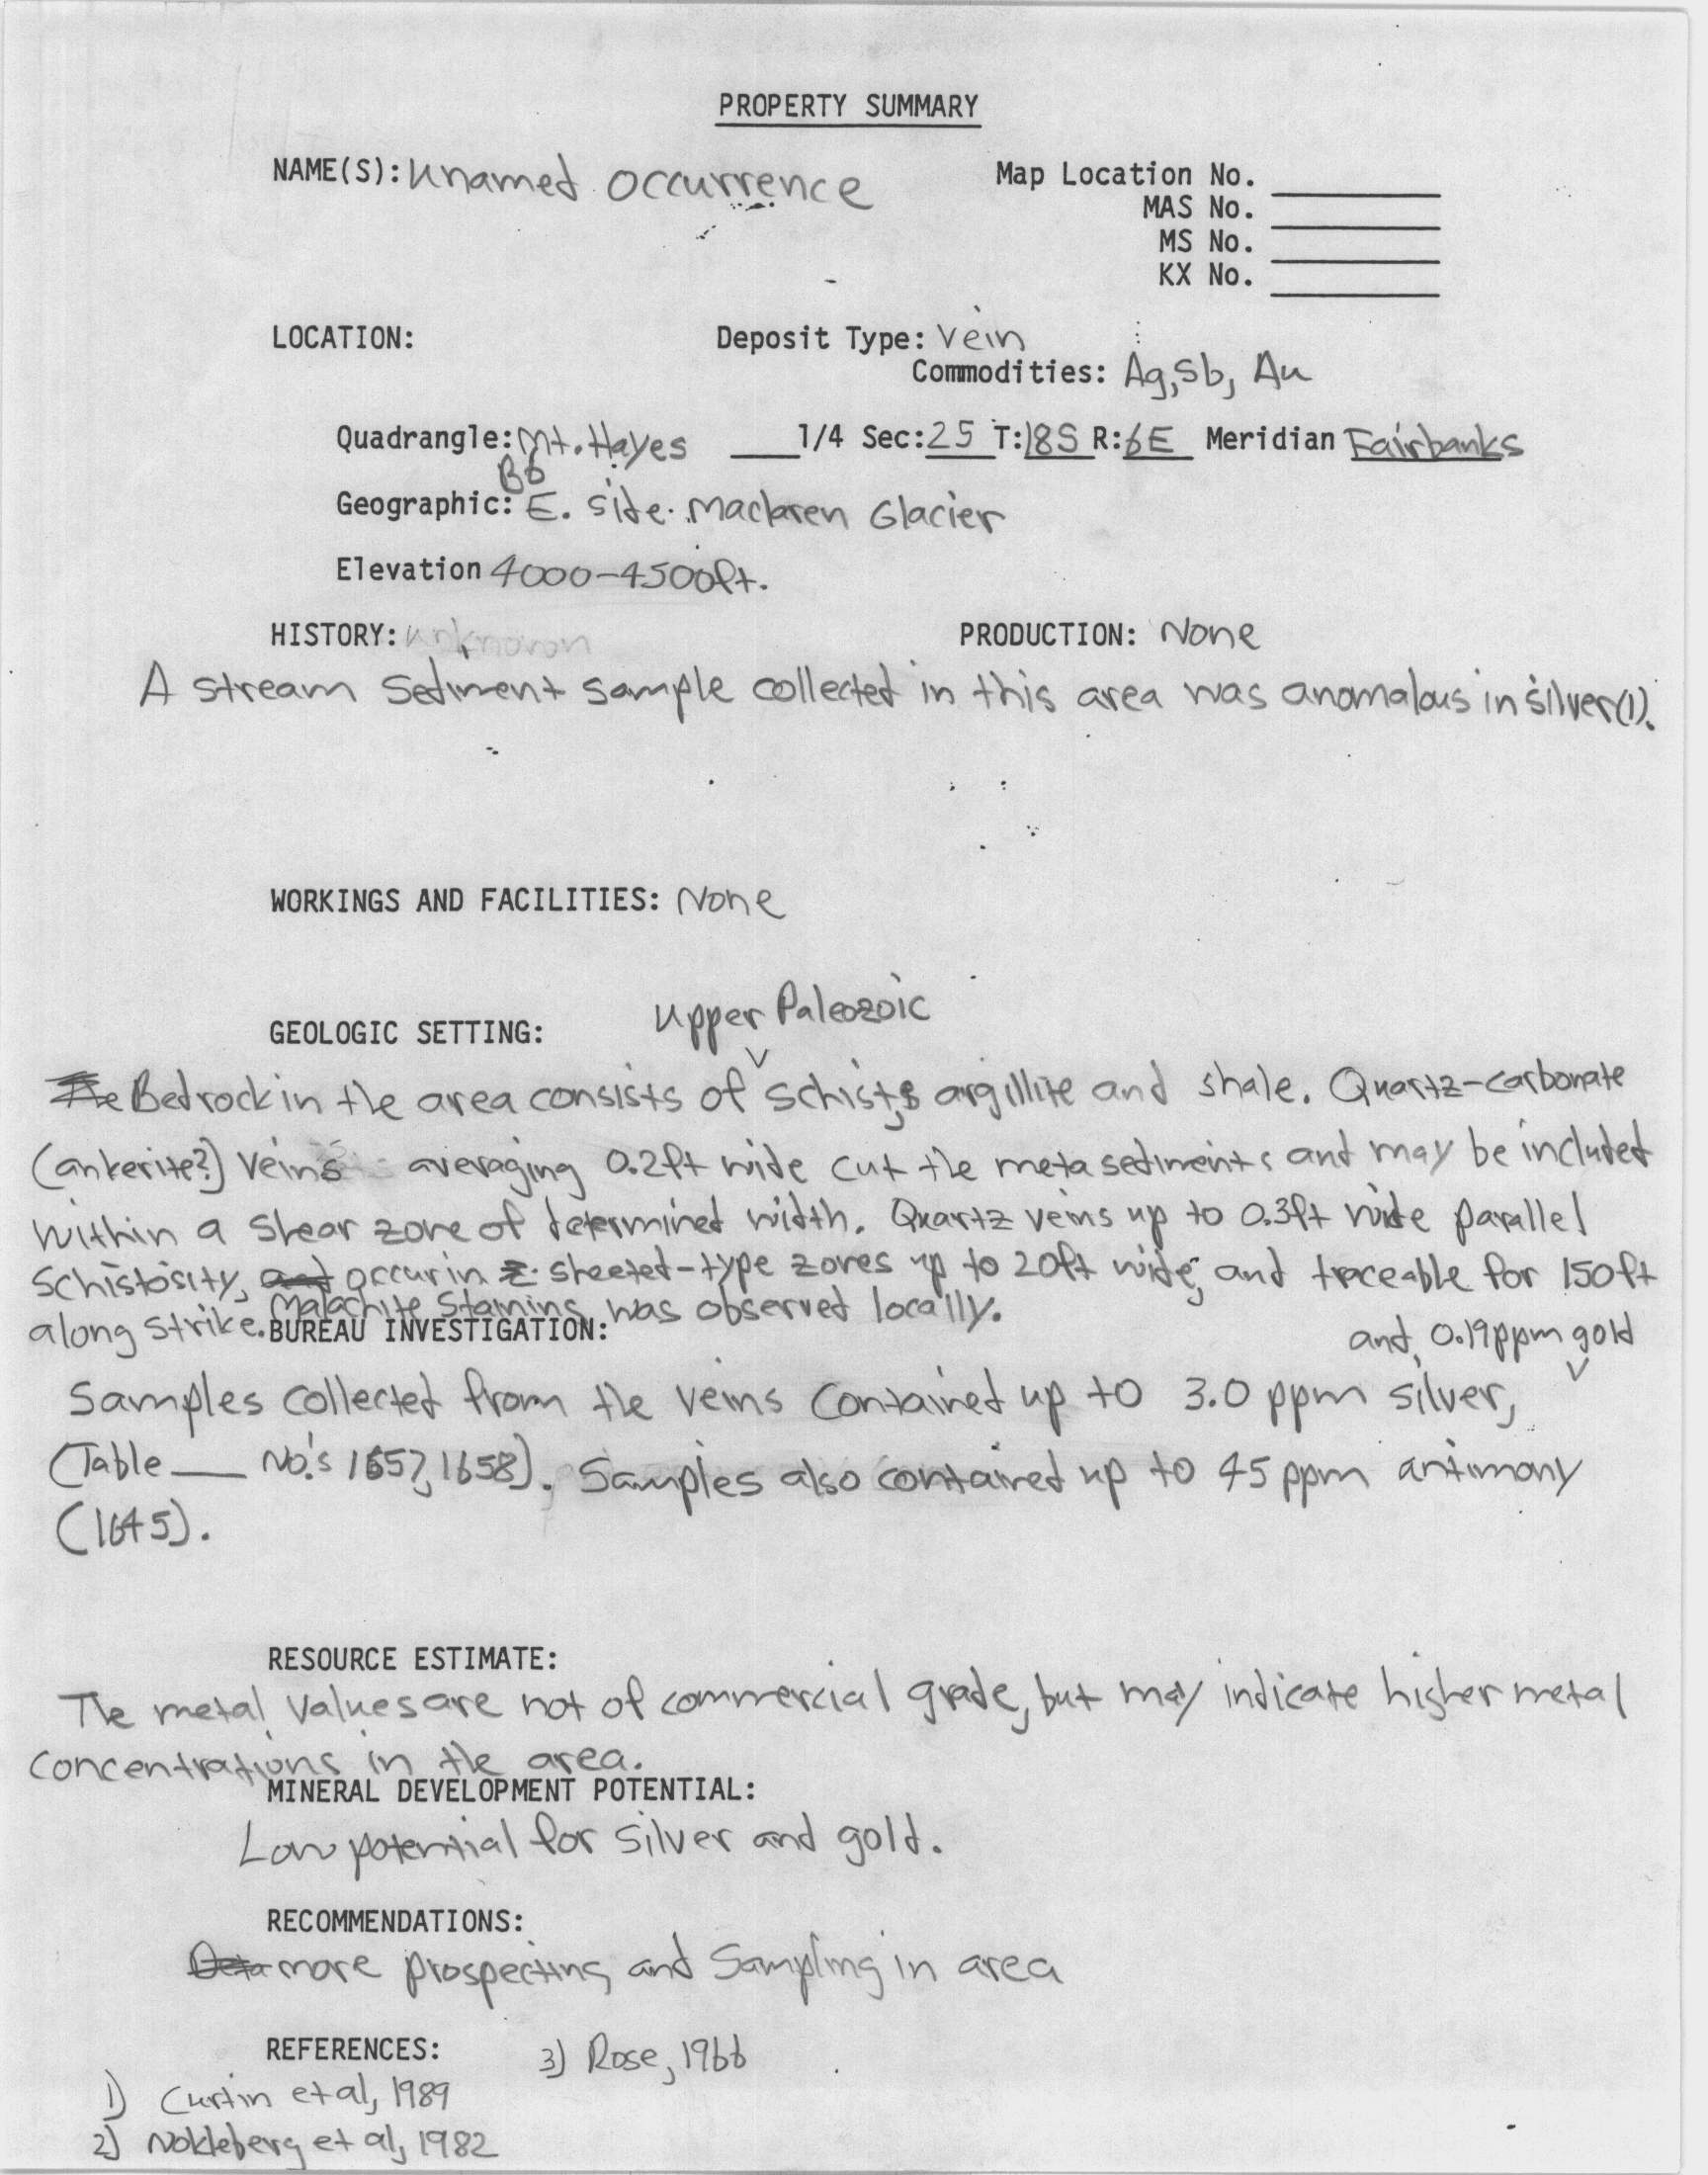 PROPERTY SUMMARY
NAME(S): unamed occurrence
Map Location No. ______
MAS No. ______
MS No. ______
KX No. ______
LOCATION:
Deposit Type: Vein
Commodities: Ag, Sb, Au
Quadrangle: Mt. Hayes ____1/4 Sec: 25 T: 18S R: 6E Meridian Fairbanks
B6
Geographic: E. side Maclaren Glacier
Elevation 4000-4500ft.
HISTORY: unknown PRODUCTION: None
A stream sediment sample collected in this area was anomalous in silver(1).
WORKINGS AND FACILITIES: None
GEOLOGIC SETTING:
upper Paleozoic
The Bedrock in the area consists of schist, argillite and shale. Quartz-carbonate
(ankerite?) veins averaging 0.2ft wide cut the metasediments and may be included
within a shear zone of determined width. Quartz veins up to 0.3ft wide parallel
schistosity, and occur in sheeted-type zones up to 20ft wide, and traceable for 150ft
along strike. Malachite staining was observed locally.
BUREAU INVESTIGATION:
and 0.19ppm gold
Samples collected from the veins contained up to 3.0 ppm silver,
(Table ___ No.'s 1657, 1658). Samples also contained up to 45 ppm antimony
(1645).
RESOURCE ESTIMATE:
The metal values are not of commercial grade, but may indicate higher metal
concentrations in the area.
MINERAL DEVELOPMENT POTENTIAL:
Low potential for silver and gold.
RECOMMENDATIONS:
more prospecting and sampling in area
REFERENCES:
3) Rose, 1966
1) Curtin et al, 1989
2) Nokleberg et al, 1982